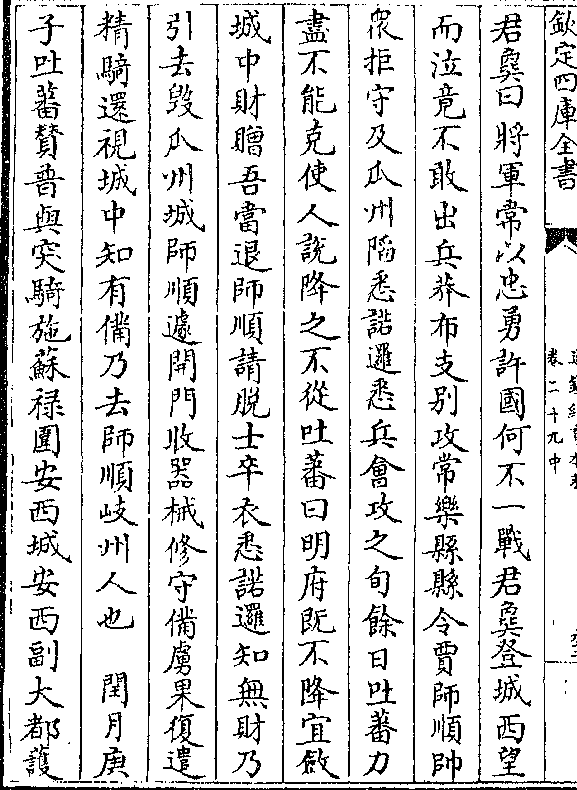 欽定四庫全書
卷二十九中
君㚟曰將軍常以忠勇許國何不一戰君㚟登城西望
而泣竟不敢出兵莽布支别攻常樂縣縣令賈師順帥
衆拒守及瓜州陷悉諾邏悉兵會攻之旬餘日吐蕃力
盡不能克使人說降之不從吐蕃曰明府既不降宜斂
城中財贈吾當退師順請脱士卒衣悉諾邏知無財乃
引去毁瓜州城師順遽開門收器械修守備虜果復遣
精騎還視城中知有備乃去師順岐州人也　閏月庚
子吐蕃贊普與突騎施蘇禄圍安西城安西副大都護